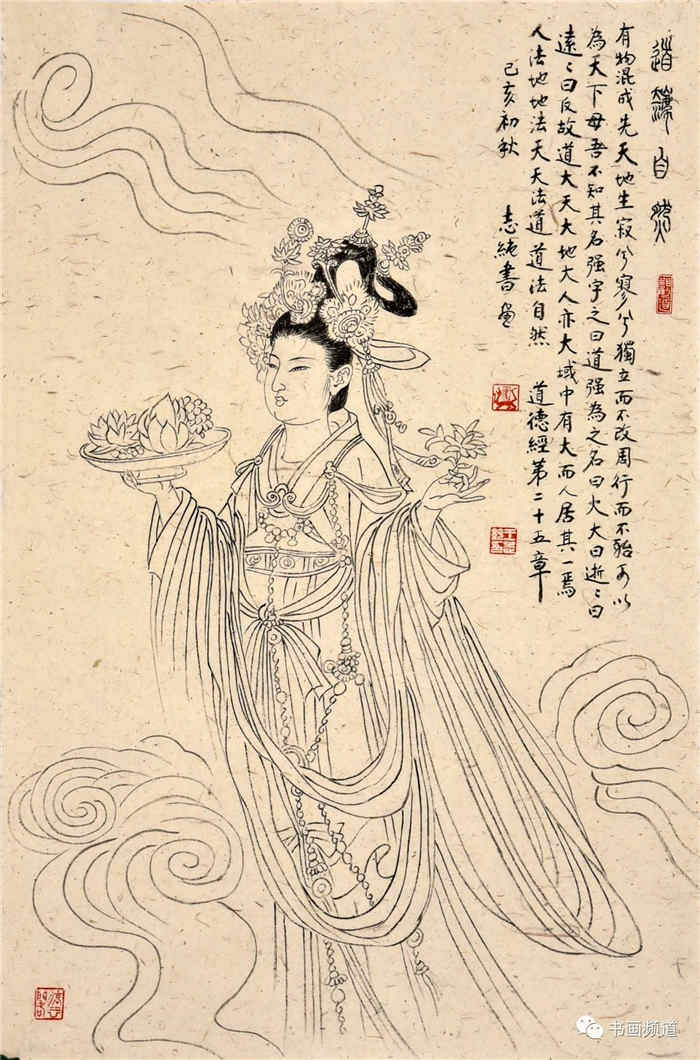 道灋自然
有物混成先天地生寂兮寥兮獨立而不改周行而不殆可以
為天下母吾不知其名强字之曰道强為之名曰大大曰逝〻曰
遠〻曰反故道大天大地大人亦大域中有大而人居其一焉
人法地地法天天法道道法自然 道德經第二十五章
己亥初秋 志純書画
书画频道